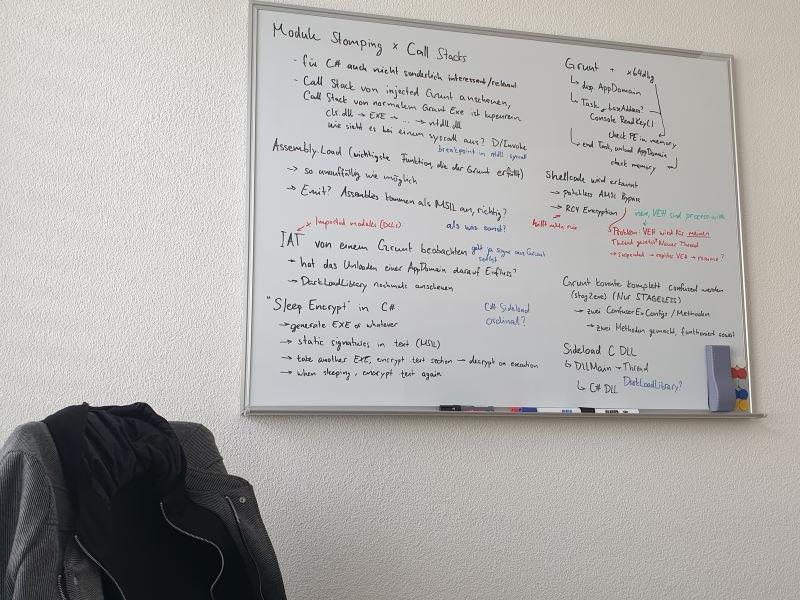 Module Stomping x Call Stacks
- für C# auch nicht sonderlich interessant/relevant
- Call Stack von injected Grunt anschauen,
Call Stack von normalem Grunt Exe ist lupenrein
clr.dll → EXE → ... → ntdll.dll
wie sieht es bei einem syscall aus? D/Invoke
breakpoint in ntdll:syscall
Assembly.Load (wichtigste Funktion, die der Grunt erfüllt)
→ so unauffällig wie möglich
→ Emit? Assemblies kommen als MSIL an, richtig?
als was sonst?
Imported modules (DLLs)
IAT von einem Grunt beobachten
geht ja sogar am Grunt
selbst
→ hat das Unloaden einer AppDomain darauf Einfluss?
→ DarkLoadLibrary nochmals anschauen
"Sleep Encrypt" in C#:
C# Sideload
ordinal?
→ generate EXE or whatever
→ static signatures in text (MSIL)
→ take another EXE, encrypt text section → decrypt on execution
→ when sleeping, encrypt text again
Grunt + x64dbg
↳ disp. AppDomain
↳ Task, baseAddress?
Console.ReadKey()
check PE in memory
↳ end Task, unload AppDomain
check memory
Shellcode wird erkannt
→ patchless AMSI Bypass
→ RC4 Encryption
hilft mehr nie
nein, VEH sind process-wide
Problem: VEH wird für meinen
Thread gesetzt? Neuer Thread
→ suspended → register VEH → resume?
Grunt konnte komplett confused werden
(stagZero) (Nur STAGELESS)
→ zwei ConfuserEx Configs / Methoden
→ zwei Methoden gemacht, funktioniert soweit
Sideload C DLL
↳ DLLMain → Thread
↳ C# DLL
DarkLoadLibrary?